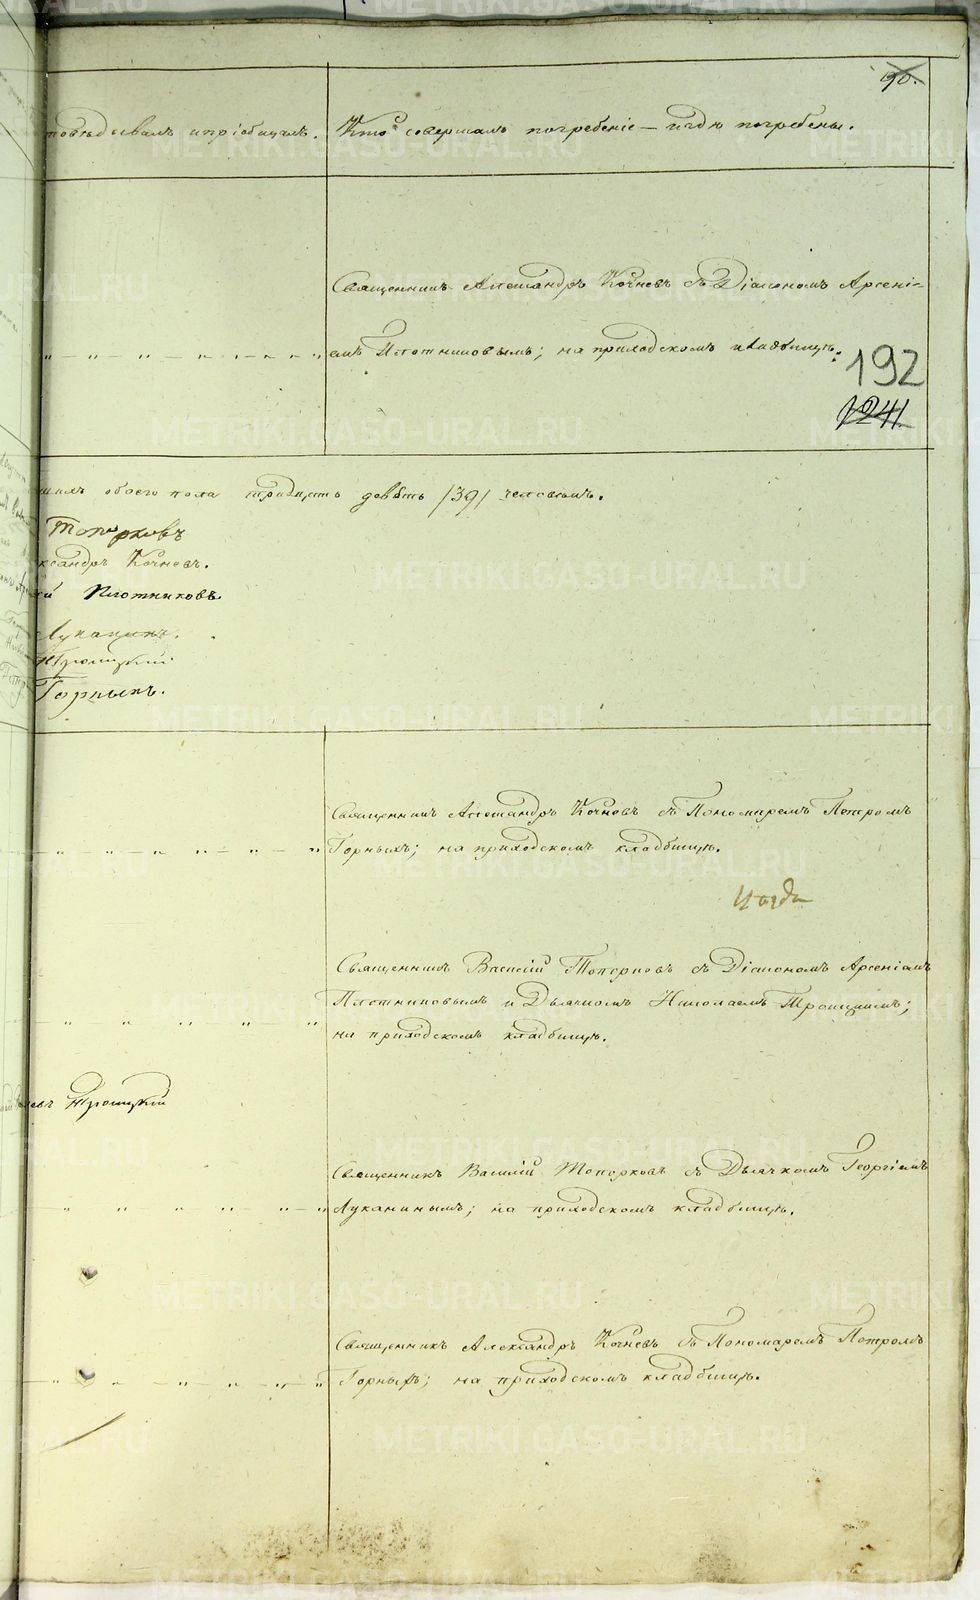 90.
повѣдывалъ и пріобщалъ. Кто совершалъ погребеніе – и гдѣ погребены.
Священникъ Александръ Кочневъ съ Діакономъ Арсені-
емъ Плотниковымъ; на приходскомъ кладбищѣ.
192
1241
шихъ обоего пола тридцать девять /39/ человѣкъ.
Топорковъ
ксандръ Кочневъ.
й Плотниковъ
Луканинъ.
Троицкій
Горныхъ.
Священникъ Александръ Кочневъ съ Пономаремъ Петромъ
Горныхъ; на приходскомъ кладбищѣ.
Священникъ Василій Топорковъ съ Діакономъ Арсеніемъ
Плотниковымъ и Дьячкомъ Николаемъ Троицкимъ;
на приходскомъ кладбищѣ.
Троицкій
Священникъ Василій Топорковъ съ Дьячкомъ Георгіемъ
Луканинымъ; на приходскомъ кладбищѣ.
Священникъ Александръ Кочневъ съ Пономаремъ Петромъ
Горныхъ; на приходскомъ кладбищѣ.
METRIKI.GASO-URAL.RU